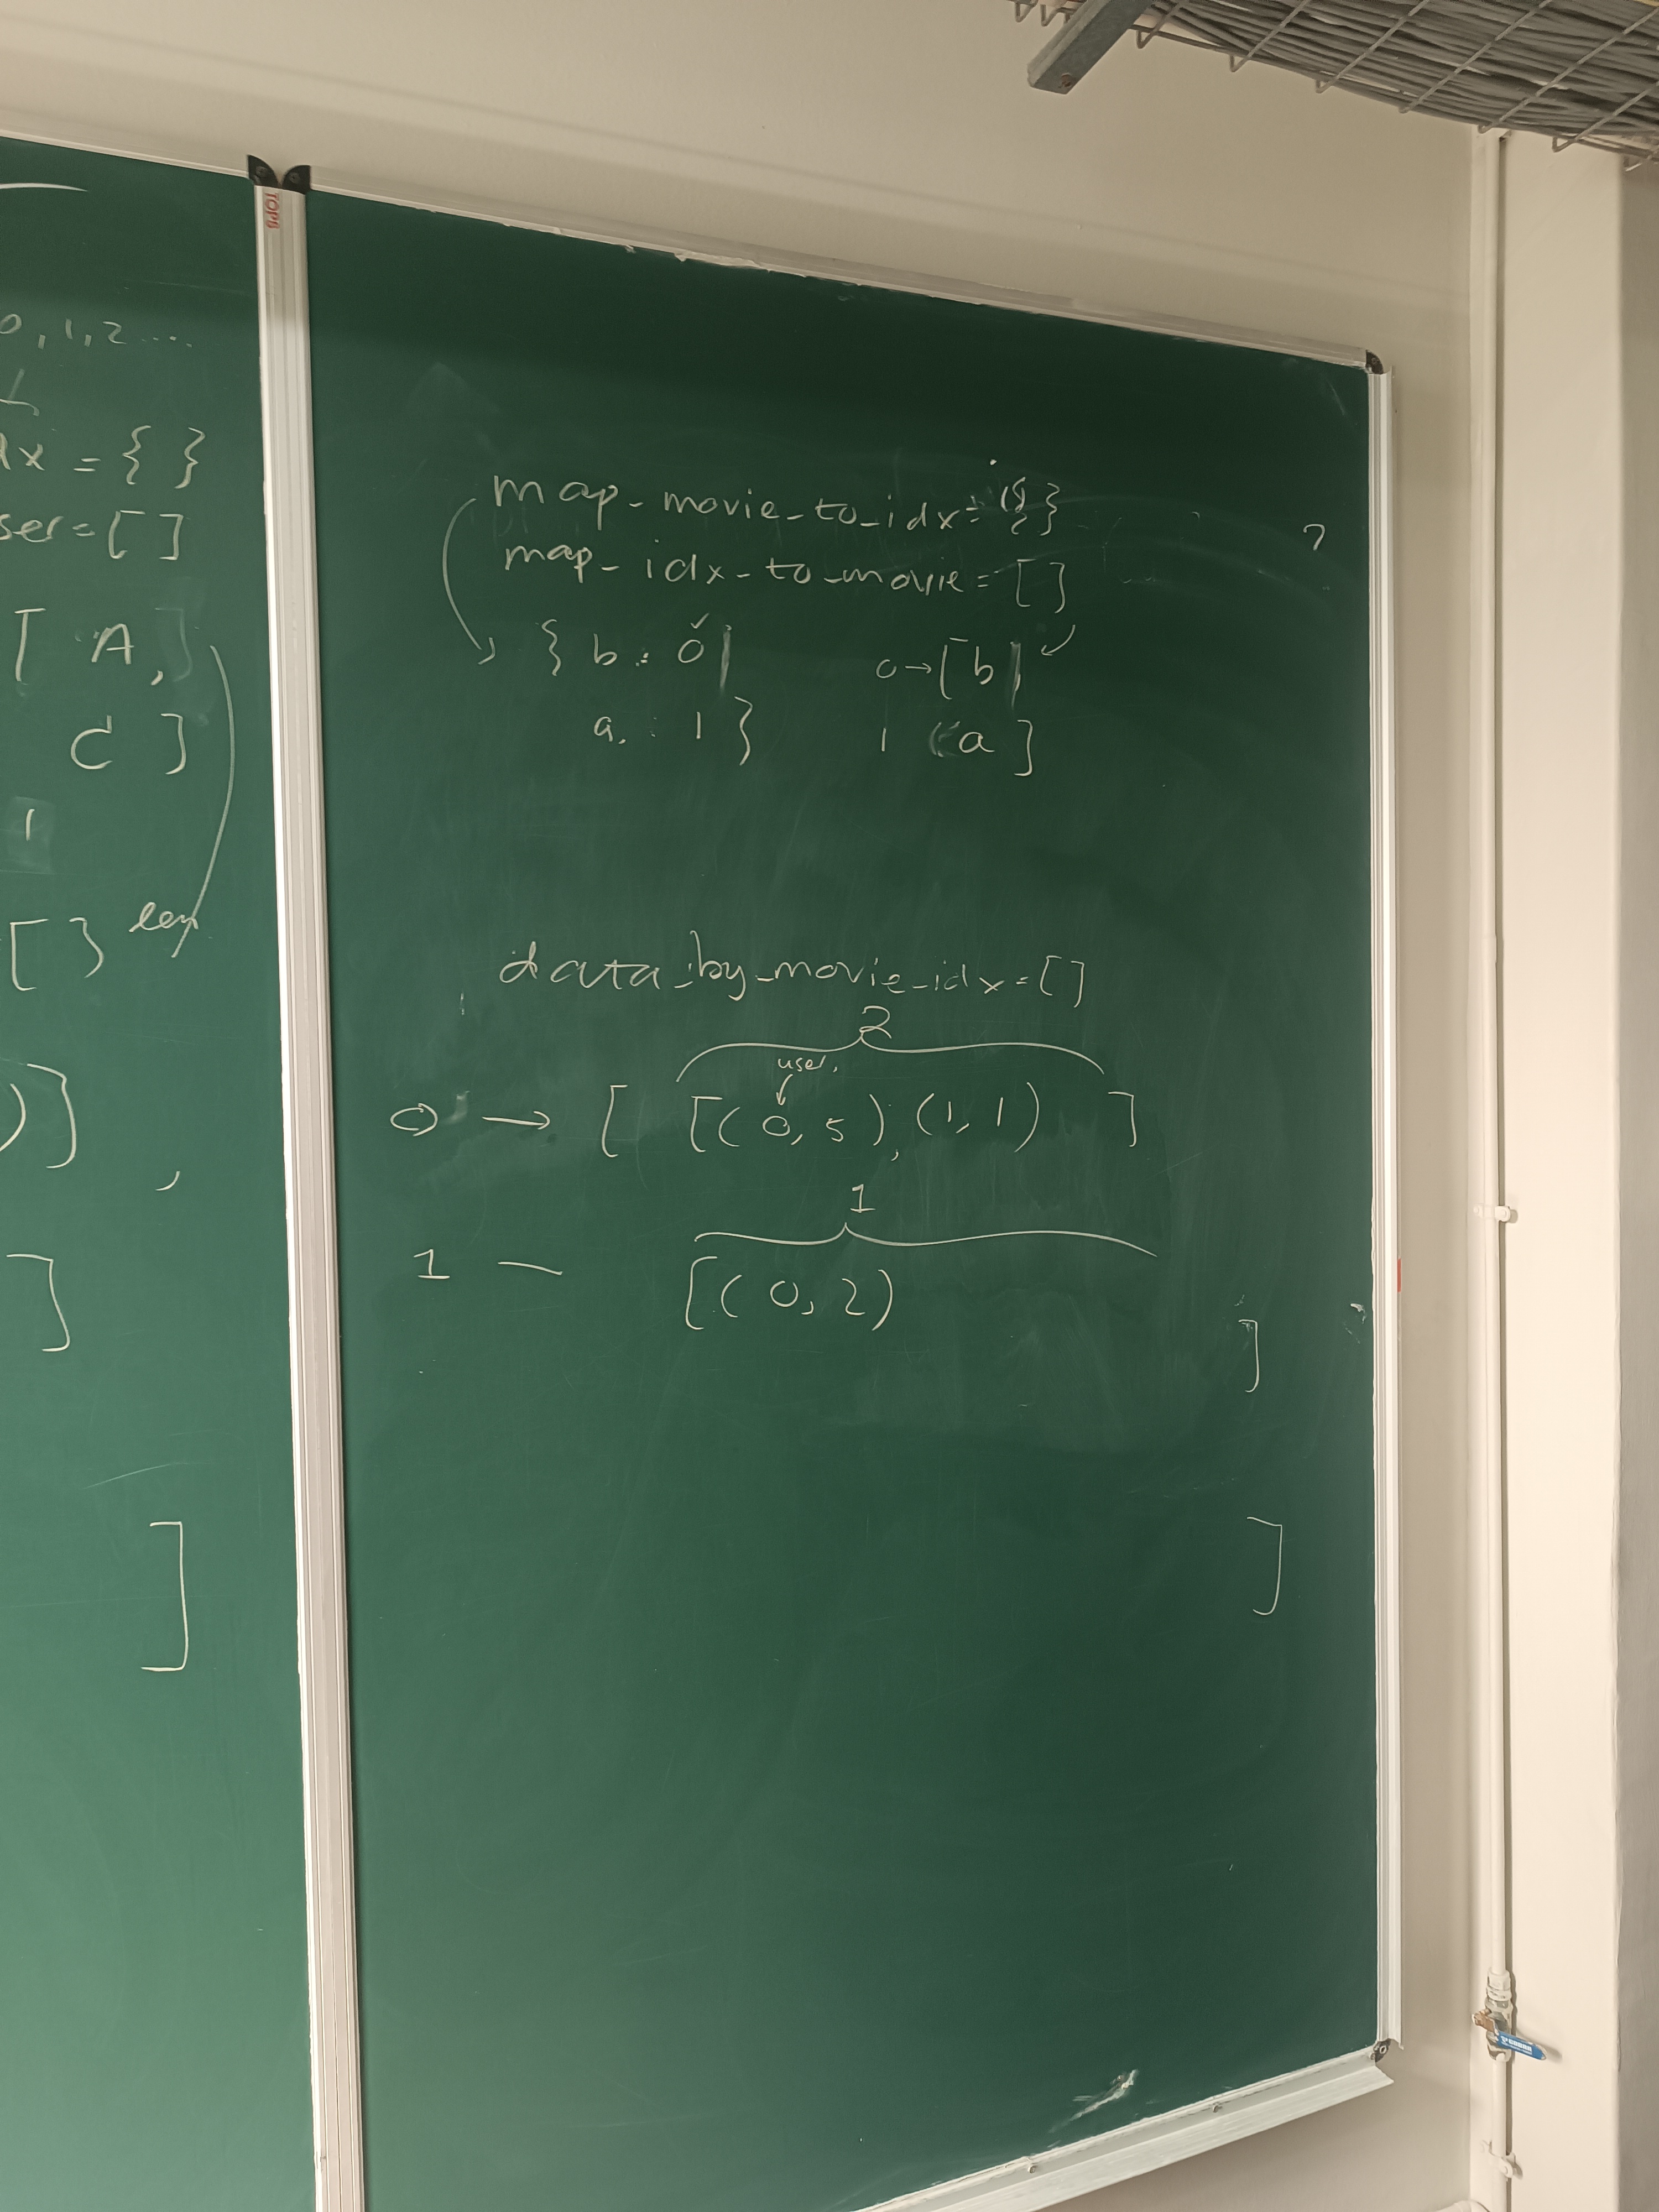 0, 1, 2 ....
dx = { }
ser = [ ]
[ A,
C ]
1
[ ] len
) ]
,
]
]
map_movie_to_idx = { }
map_idx_to_movie = [ ]
{ b : 0 0 → [ b
a : 1 } 1 a ]
data_by_movie_idx = [ ]
2
user
0 → [ [ ( 0, 5 ), ( 1, 1 ) ]
1
1 — [ ( 0, 2 )
]
]
TOPS